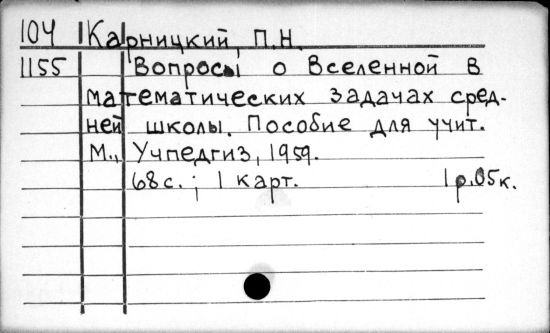 104 Карницкий, П.Н.
1155 Вопросы о Вселенной в
математических задачах сред-
ней школы. Пособие для учит.
М., Учпедгиз, 1959.
68с.; 1 карт. 1р.05к.